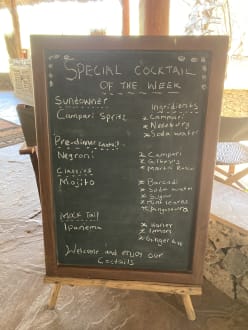 Special Cocktail
OF THE WEEK
Sundowner
Ingredients
Campari Spritz
x Campari
x Nederburg
x Soda water
Pre-dinner Cocktail
Negroni
x Campari
x Gilbey's
x Martini Rosso
Classics
Mojito
x Bacardi
x Soda water
x Sugar
x mint leaves
x Angostura
Mock Tail
Ipanema
x
x
x Ginger Ale
Welcome and enjoy our
Coctails